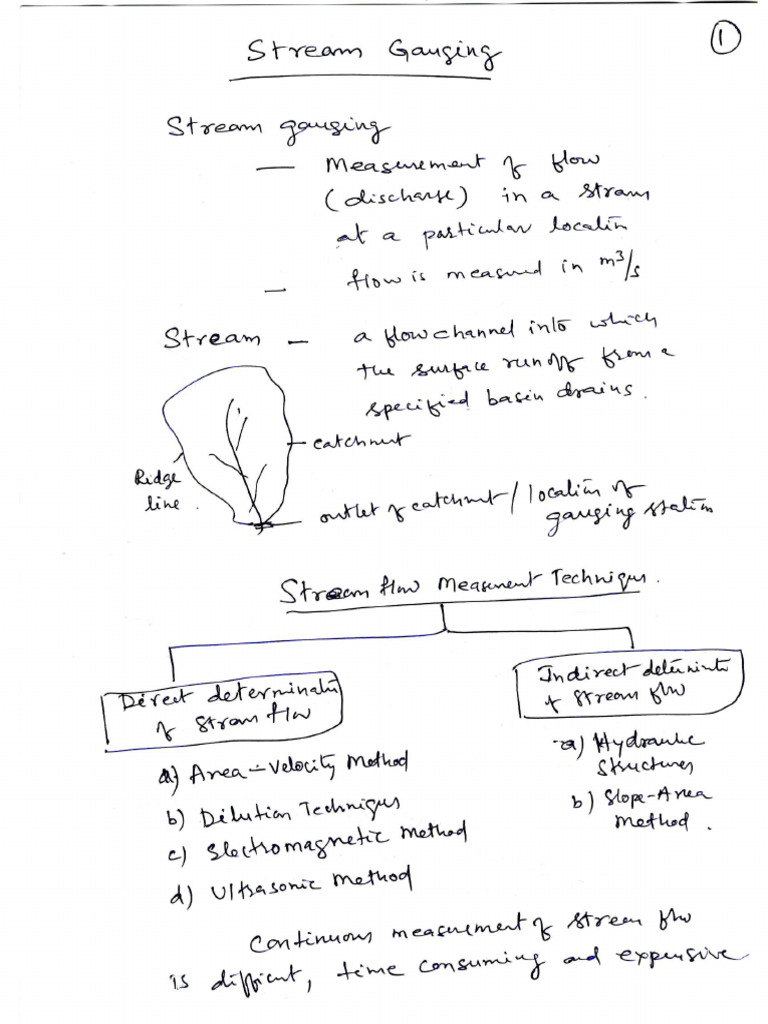 1
Stream Gauging
Stream gauging
— Measurement of flow
(discharge) in a stream
at a particular location
— flow is measured in m³/s
Stream — a flow channel into which
the surface runoff from a
specified basin drains.
catchment
Ridge
line.
outlet of catchment / location of
gauging station
Stream flow Measurement Techniques.
Direct determination
of stream flow
a) Area-Velocity Method
b) Dilution Techniques
c) Electromagnetic Method
d) Ultrasonic Method
Indirect determination
of stream flow
a) Hydraulic
structures
b) Slope-Area
Method.
Continuous measurement of stream flow
is difficult, time consuming and expensive